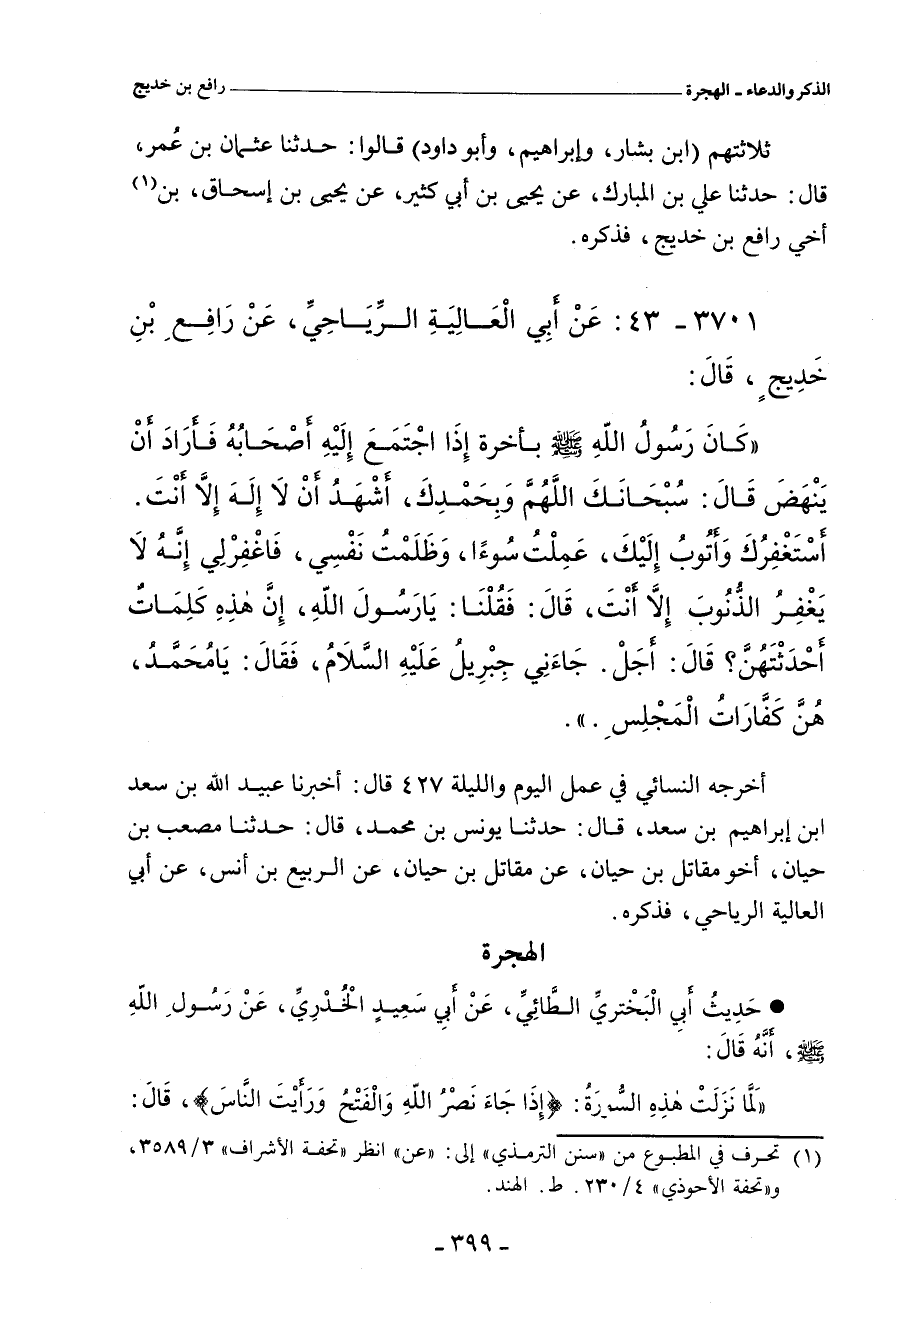 الذكر والدعاء - الهجرة ــــــــــــــــــــ رافع بن خديج
ثلاثتهم (ابن بشار، وإبراهيم، وأبو داود) قالوا: حدثنا عثمان بن عُمر،
قال: حدثنا علي بن المبارك، عن يحيى بن أبي كثير، عن يحيى بن إسحاق، بن(١)
أخي رافع بن خديج، فذكره.
٣٧٠١ - ٤٣: عَنْ أَبِي الْعَالِيَةِ الرِّيَاحِيِّ، عَنْ رَافِعِ بْنِ
خَدِيجٍ، قَالَ:
«كَانَ رَسُولُ اللهِ ﷺ بأخرة إِذَا اجْتَمَعَ إِلَيْهِ أَصْحَابُهُ فَأَرَادَ أَنْ
يَنْهَضَ قَالَ: سُبْحَانَكَ اللَّهُمَّ وَبِحَمْدِكَ، أَشْهَدُ أَنْ لَا إِلَهَ إِلَّا أَنْتَ.
أَسْتَغْفِرُكَ وَأَتُوبُ إِلَيْكَ، عَمِلْتُ سُوءًا، وَظَلَمْتُ نَفْسِي، فَاغْفِرْلِي إِنَّهُ لَا
يَغْفِرُ الذُّنُوبَ إِلَّا أَنْتَ، قَالَ: فَقُلْنَا: يَارَسُولَ اللهِ، إِنَّ هٰذِهِ كَلِمَاتٌ
أَحْدَثْتَهُنَّ؟ قَالَ: أَجَلْ. جَاءَنِي جِبْرِيلُ عَلَيْهِ السَّلَامُ، فَقَالَ: يَامُحَمَّدُ،
هُنَّ كَفَّارَاتُ الْمَجْلِسِ.».
أخرجه النسائي في عمل اليوم والليلة ٤٢٧ قال: أخبرنا عبيد الله بن سعد
ابن إبراهيم بن سعد، قال: حدثنا يونس بن محمد، قال: حدثنا مصعب بن
حيان، أخو مقاتل بن حيان، عن مقاتل بن حيان، عن الربيع بن أنس، عن أبي
العالية الرياحي، فذكره.
الهجرة
● حَدِيثُ أَبِي الْبَخْتَرِيِّ الطَّائِيِّ، عَنْ أَبِي سَعِيدٍ الْخُدْرِيِّ، عَنْ رَسُولِ اللهِ
ﷺ، أَنَّهُ قَالَ:
«لَمَّا نَزَلَتْ هٰذِهِ السُّورَةُ: ﴿إِذَا جَاءَ نَصْرُ اللهِ وَالْفَتْحُ وَرَأَيْتَ النَّاسَ﴾، قَالَ:
(١) تحرف في المطبوع من «سنن الترمذي» إلى: «عن» انظر «تحفة الأشراف» ٣٥٨٩/٣،
و«تحفة الأحوذي» ٢٣٠/٤. ط. الهند.
- ٣٩٩ -